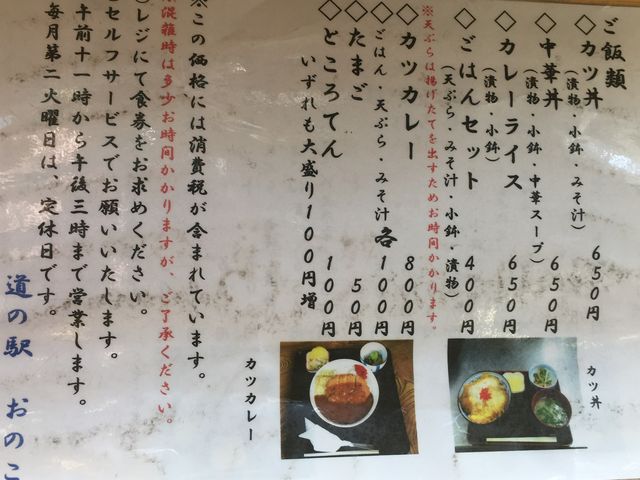 ご飯類
◇カツ丼 650円
(漬物・小鉢・みそ汁)
◇中華丼 650円
(漬物・小鉢・中華スープ)
◇カレーライス 650円
(漬物・小鉢)
◇ごはんセット 400円
(天ぷら・みそ汁・小鉢・漬物)
※天ぷらは揚げたてを出すためお時間かかります。
◇カツカレー 800円
◇ごはん・天ぷら・みそ汁 各100円
◇たまご 50円
◇ところてん 100円
いずれも大盛り100円増
カツ丼
カツカレー
※この価格には消費税が含まれています。
※混雑時は多少お時間かかりますが、ご了承ください。
レジにて食券をお求めください。
セルフサービスでお願いいたします。
午前十一時から午後三時まで営業します。
毎月第二火曜日は、定休日です。
道の駅 おのこ